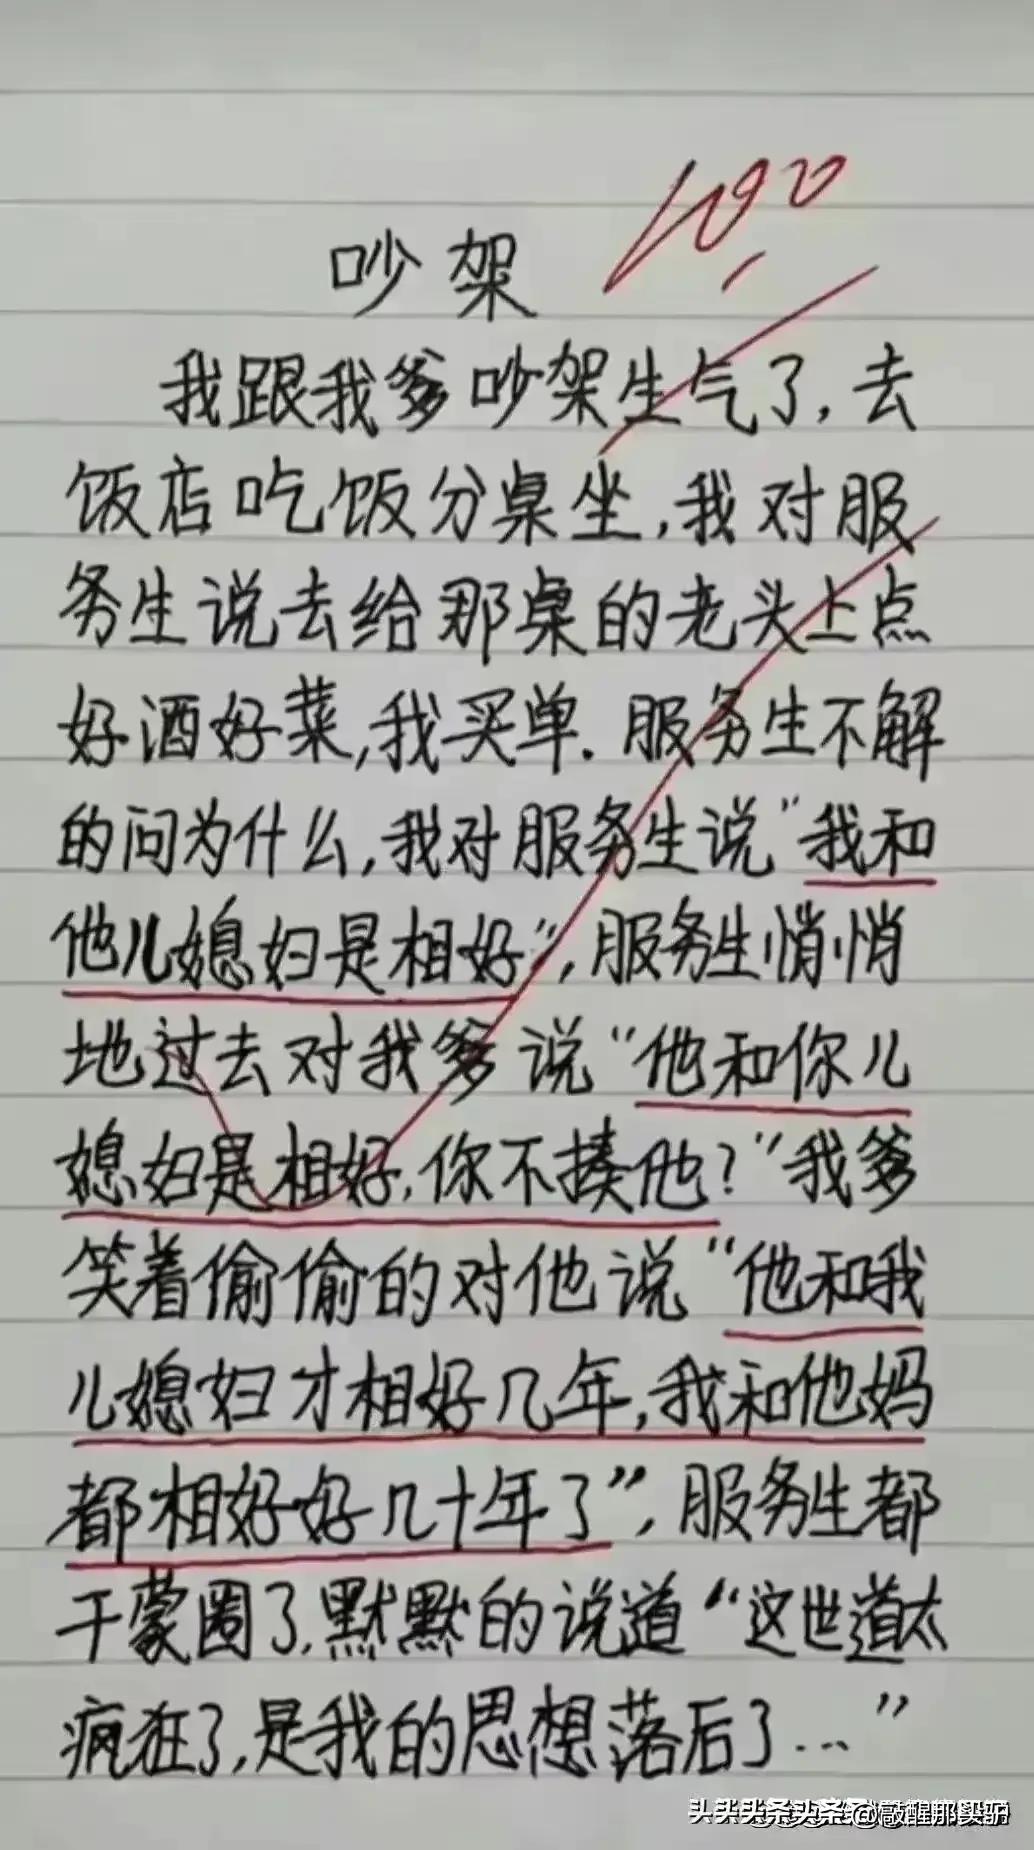 吵架
100
我跟我爹吵架生气了,去
饭店吃饭分桌坐,我对服
务生说去给那桌的老头上点
好酒好菜,我买单.服务生不解
的问为什么,我对服务生说"我和
他儿媳妇是相好",服务生悄悄
地过去对我爹说"他和你儿
媳妇是相好,你不揍他?"我爹
笑着偷偷的对他说"他和我
儿媳妇才相好几年,我和他妈
都相好好几十年了",服务生都
干蒙圈了.默默的说道"这世道太
疯狂了,是我的思想落后了..."
@敲醒那头驴